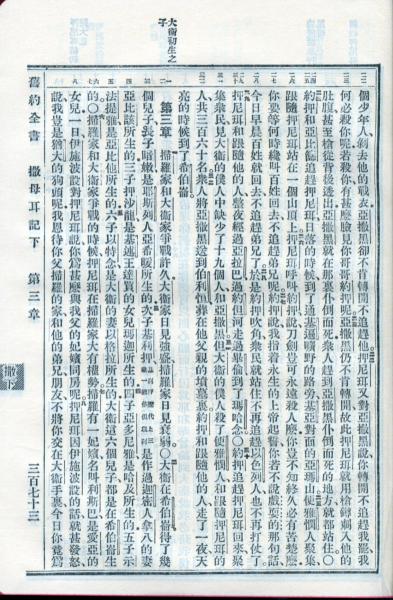 大衛初生之子
個少年人剝去他的戰衣亞撒黑卻不肯轉開不追趕他押尼珥又對亞撒黑說你轉開不追趕我罷我
何必殺你呢若殺你有甚麼臉見你哥哥約押呢亞撒黑仍不肯轉開故此押尼珥就用槍鐏刺入他的
肚腹甚至槍從背後透出亞撒黑就在那裏仆倒而死衆人趕到亞撒黑仆倒而死的地方就都站住〇
約押和亞比篩追趕押尼珥日落的時候到了通基遍曠野的路旁基亞對面的亞瑪山便雅憫人聚集
跟隨押尼珥站在一個山頂上押尼珥呼叫約押說刀劍豈可永遠殺人麼你豈不知終久必有苦楚麼
你要等何時纔叫百姓回去不追趕弟兄呢約押說我指着永生的上帝起誓你若不說戲耍的那句話
今日早晨百姓就回去不追趕弟兄了於是約押吹角衆民就站住不再追趕以色列人也不再打仗了
押尼珥和跟隨他的人整夜經過亞拉巴過約但河走過畢倫到了瑪哈念〇約押追趕押尼珥回來聚
集衆民見大衛的僕人中缺少了十九個人和亞撒黑但大衛的僕人殺了便雅憫人和跟隨押尼珥的
人共三百六十名衆人將亞撒黑送到伯利恒葬在他父親的墳墓裏約押和跟隨他的人走了一夜天
亮的時候到了希伯崙
第三章 掃羅家和大衛家爭戰許久大衛家日見強盛掃羅家日見衰弱〇大衛在希伯崙得了幾
個兒子長子暗嫩是耶斯列人亞希暖所生的次子基利押是作過迦密人拿八的妻
亞比該所生的三子押沙龍是基述王達買的女兒瑪迦所生的四子亞多尼雅是哈及所生的五子示
法提雅是亞比他所生的六子以特念是大衛的妻以格拉所生的大衛這六個兒子都是在希伯崙生
的〇掃羅家和大衛家爭戰的時候押尼珥在掃羅家大有權勢掃羅有一妃嬪名叫利斯巴是愛亞的
女兒一日伊施波設對押尼珥說你為甚麼與我父的妃嬪同房呢押尼珥因伊施波設的話就甚發怒
說我豈是猶大的狗頭呢我恩待你父掃羅的家和他的弟兄朋友不將你交在大衛手裏今日你竟為
舊約全書 撒母耳記下 第三章 三百七十三
撒下